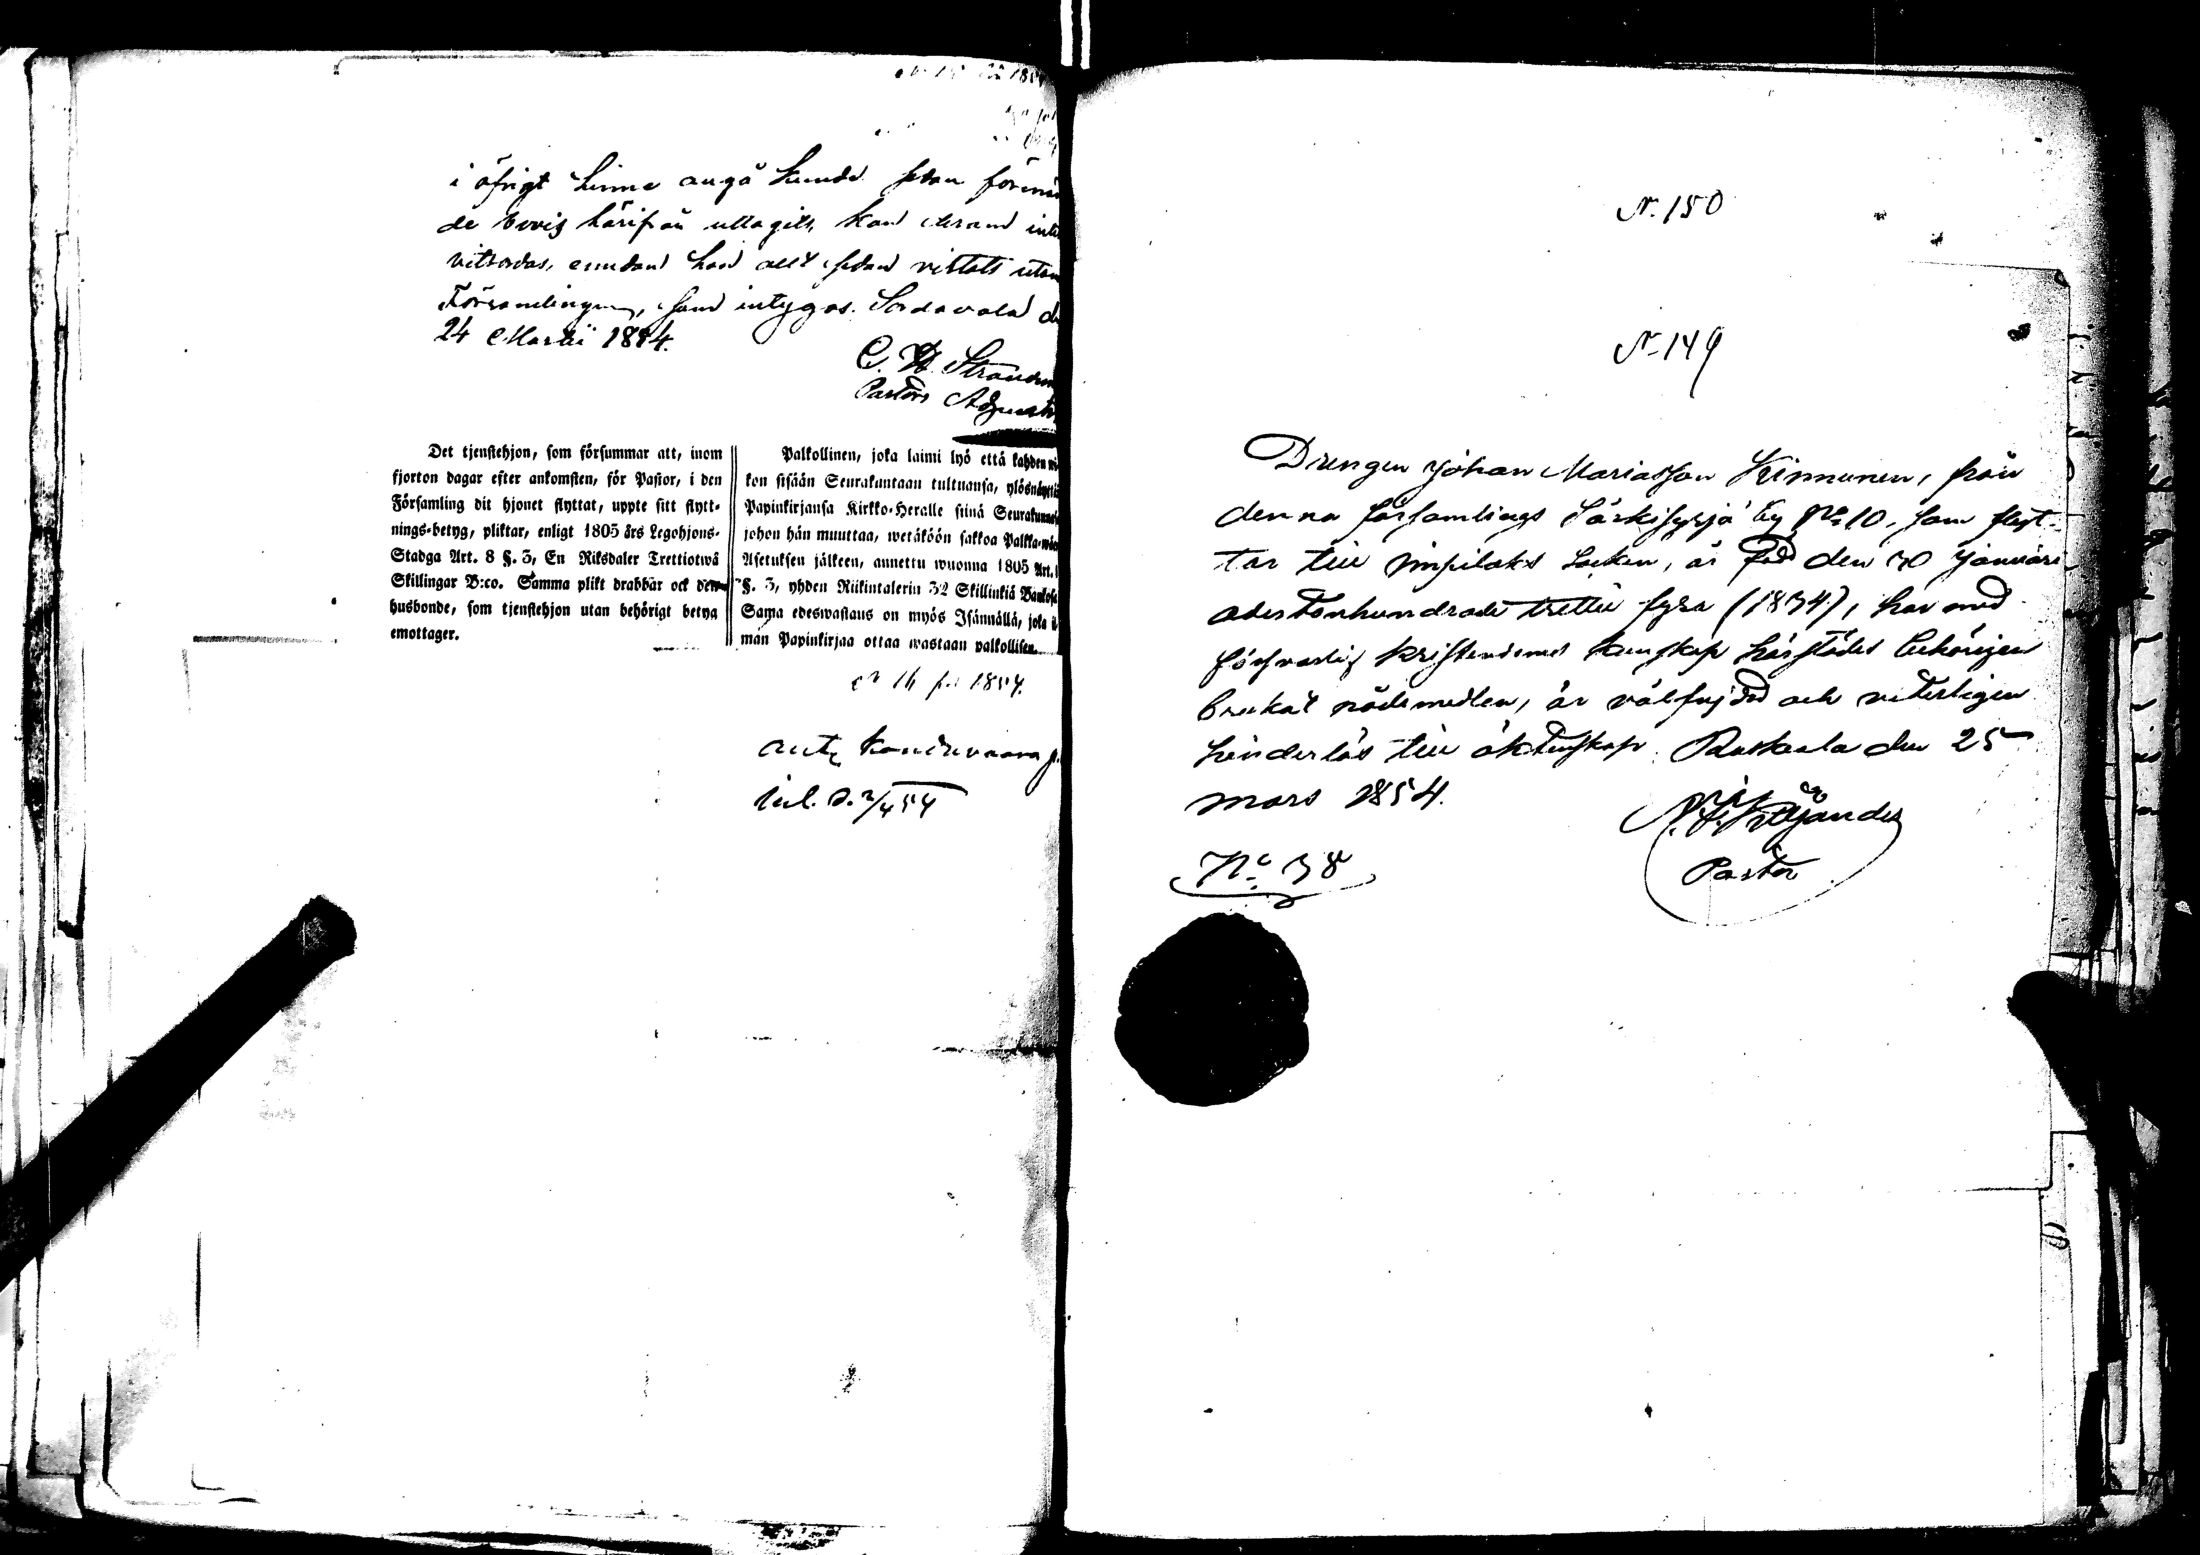 i öfrigt henne angå kunde sedan
de bevis härifrån uttagits, kan
vitsordas, emedan hon allt sedan vistats utom
Församlingen, som intygas. Sordavala
24 Martii 1854.
Pastors
Det tjenstehjon, som försummar att, inom
fjorton dagar efter ankomsten, för Pastor, i den
Församling dit hjonet flyttat, uppte sitt flytt-
nings-betyg, pliktar, enligt 1805 års Legohjons-
Stadga Art. 8 §. 3, En Riksdaler Trettiotwå
Skillingar B:co. Samma plikt drabbar ock den
husbonde, som tjenstehjon utan behörigt betyg
emottager.
Palkollinen, joka laimi lyö että kahden
kon sisään Seurakuntaan tultuansa, ylösnäyttä
Papinkirjansa Kirkko-Heralle siinä
johon hän muuttaa, wetäköön sakkoa
Asetuksen jälkeen, annettu wuonna 1805 Art.
§. 3, yhden Riikintalerin 32 Skillinkiä
Sama edeswastaus on myös Isännällä, joka
man Papinkirjaa ottaa wastaan palkollisen.
1854.
N. 150
N. 149
Drengen Johan Mariasson Kinnunen, från
denna församlings Särkisyrjä by No 10, som flyt-
tar till Impilaks socken, är född den 30 Januari
adertonhundrade trettio fyra (1834), har med
försvarlig kristendoms kunskap härstädes behörigen
brukat nådemedlen, är välfrejdad och veterligen
hinderlös till äktenskap. Ruskeala den 25
mars 1854.
Pastor
No 38